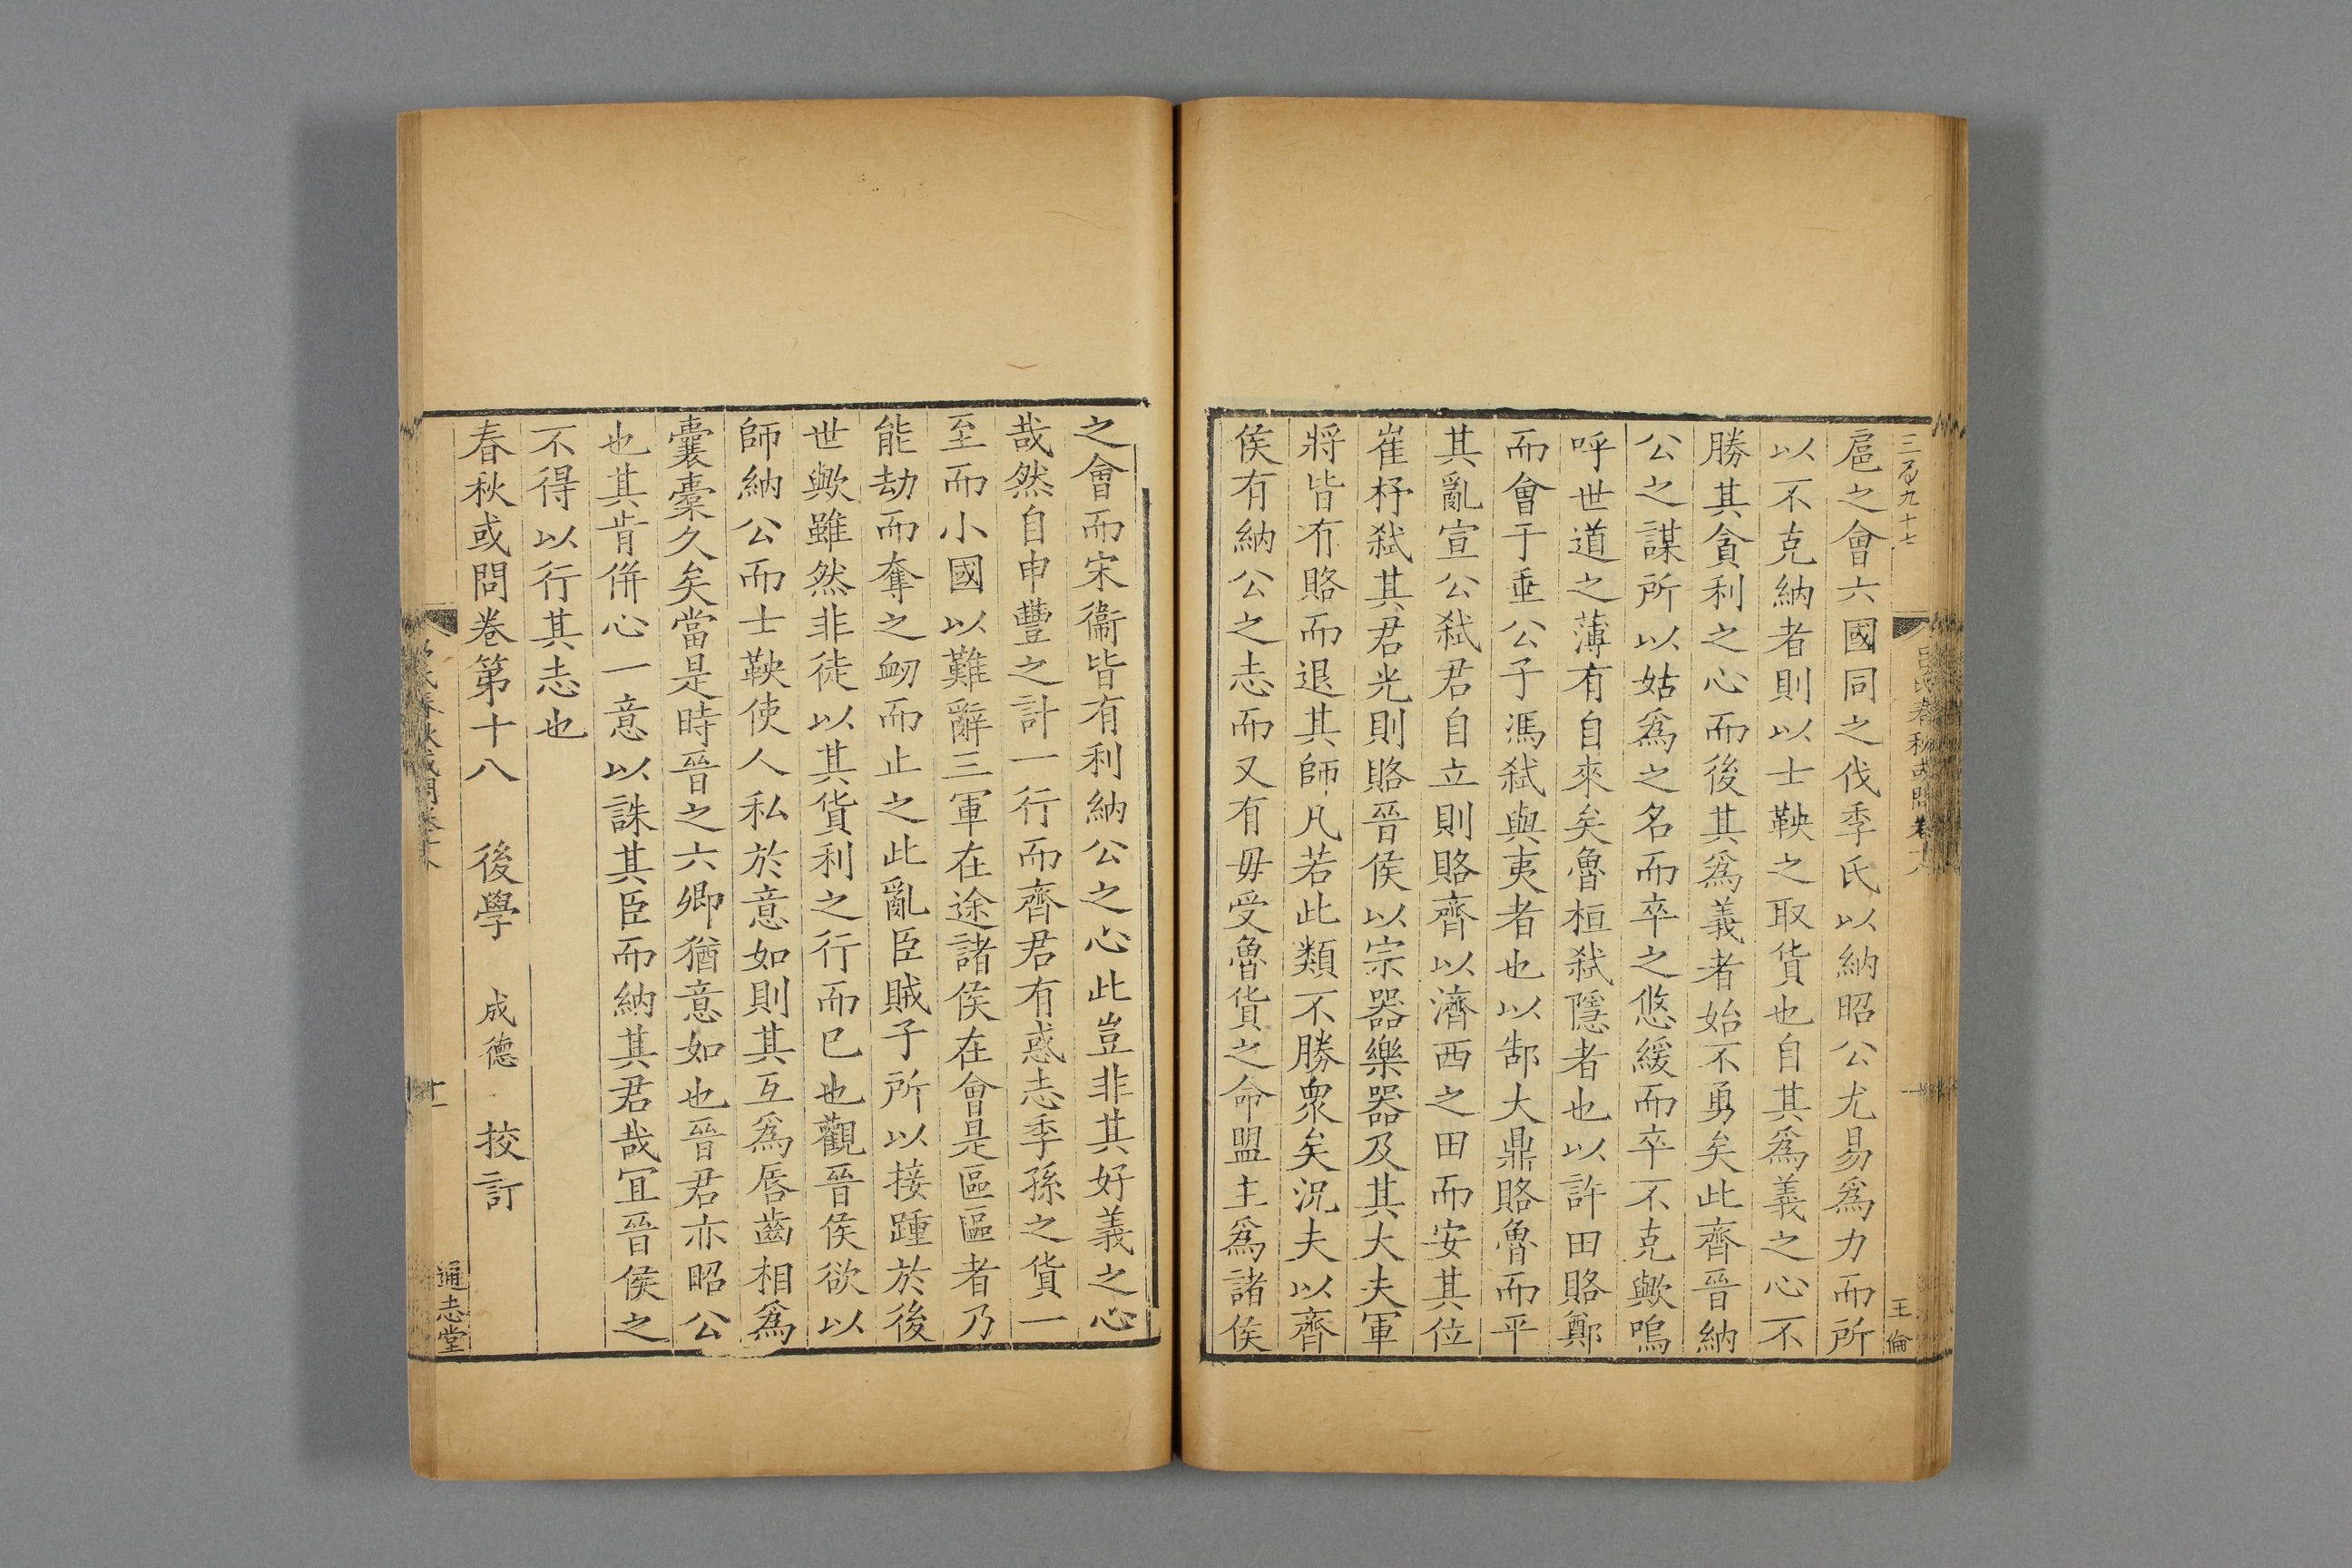 三百九十七
呂氏春秋或問卷十八
王倫
扈之會六國同之伐季氏以納昭公尤易爲力而所
以不克納者則以士鞅之取貨也自其爲義之心不
勝其貪利之心而後其爲義者始不勇矣此齊晉納
公之謀所以姑爲之名而卒之悠緩而卒不克歟嗚
呼世道之薄有自來矣魯桓弑隱者也以許田賂鄭
而會于垂公子馮弑與夷者也以郜大鼎賂魯而平
其亂宣公弑君自立則賂齊以濟西之田而安其位
崔杼弑其君光則賂晉侯以宗器樂器及其大夫軍
將皆有賂而退其師凡若此類不勝衆矣況夫以齊
侯有納公之志而又有毋受魯貨之命盟主爲諸侯
之會而宋衞皆有利納公之心此豈非其好義之心
哉然自申豐之計一行而齊君有惑志季孫之貨一
至而小國以難辭三軍在途諸侯在會是區區者乃
能劫而奪之衂而止之此亂臣賊子所以接踵於後
世歟雖然非徒以其貨利之行而已也觀晉侯欲以
師納公而士鞅使人私於意如則其互爲唇齒相爲
囊橐久矣當是時晉之六卿猶意如也晉君亦昭公
也其肯併心一意以誅其臣而納其君哉冝晉侯之
不得以行其志也
春秋或問卷第十八 後學 成德 校訂
通志堂